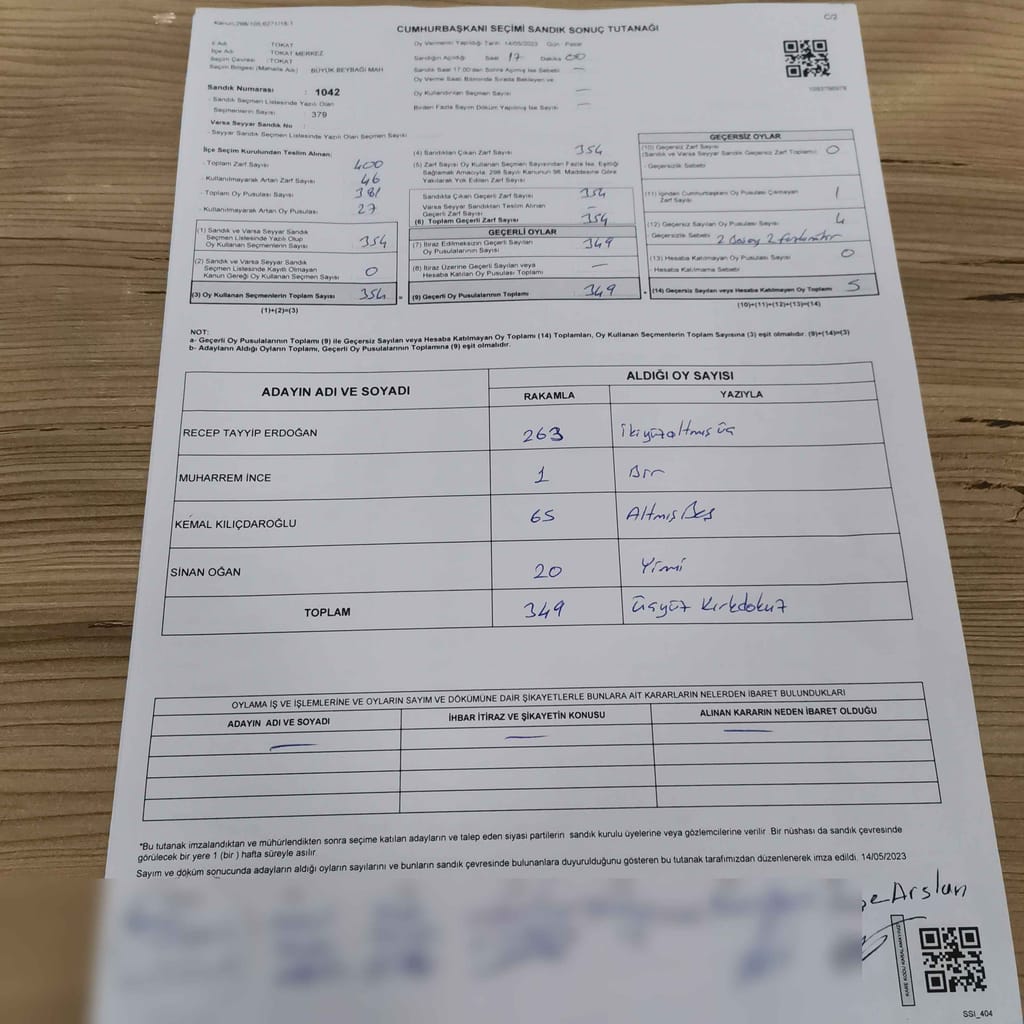 Kanun:298/105,6271/18:1
C/2
CUMHURBAŞKANI SEÇİMİ SANDIK SONUÇ TUTANAĞI
İl Adı : TOKAT
İlçe Adı : TOKAT MERKEZ
Seçim Çevresi : TOKAT
Seçim Bölgesi (Mahalle Adı) : BÜYÜK BEYBAĞI MAH
Sandık Numarası : 1042
- Sandık Seçmen Listesinde Yazılı Olan
Seçmenlerin Sayısı : 379
Varsa Seyyar Sandık No
- Seyyar Sandık Seçmen Listesinde Yazılı Olan Seçmen Sayısı
Oy Vermenin Yapıldığı Tarih 14/05/2023 Gün : Pazar
Sandığın Açıldığı Saat 17 Dakika 00
Sandık Saat 17:00'den Sonra Açılmış İse Sebebi —
Oy Verme Saati Bitiminde Sırada Bekleyen ve
Oy Kullandırılan Seçmen Sayısı —
Birden Fazla Sayım Döküm Yapılmış İse Sayısı —
İlçe Seçim Kurulundan Teslim Alınan:
- Toplam Zarf Sayısı 400
- Kullanılmayarak Artan Zarf Sayısı 46
- Toplam Oy Pusulası Sayısı 381
- Kullanılmayarak Artan Oy Pusulası 27
(1) Sandık ve Varsa Seyyar Sandık
Seçmen Listesinde Yazılı Olup
Oy Kullanan Seçmenlerin Sayısı 354
(2) Sandık ve Varsa Seyyar Sandık
Seçmen Listesinde Kayıtlı Olmayan
Kanun Gereği Oy Kullanan Seçmen Sayısı 0
(3) Oy Kullanan Seçmenlerin Toplam Sayısı 354
(1)+(2)=(3)
(4) Sandıktan Çıkan Zarf Sayısı 354
(5) Zarf Sayısı Oy Kullanan Seçmen Sayısından Fazla İse, Eşitliği
Sağlamak Amacıyla, 298 Sayılı Kanunun 98. Maddesine Göre
Yakılarak Yok Edilen Zarf Sayısı
Sandıkta Çıkan Geçerli Zarf Sayısı 354
Varsa Seyyar Sandıktan Teslim Alınan
Geçerli Zarf Sayısı —
(6) Toplam Geçerli Zarf Sayısı 354
GEÇERLİ OYLAR
(7) İtiraz Edilmeksizin Geçerli Sayılan
Oy Pusulalarının Sayısı 349
(8) İtiraz Üzerine Geçerli Sayılan veya
Hesaba Katılan Oy Pusulası Toplamı —
= (9) Geçerli Oy Pusulalarının Toplamı 349
GEÇERSİZ OYLAR
(10) Geçersiz Zarf Sayısı
(Sandık ve Varsa Seyyar Sandık Geçersiz Zarf Toplamı) 0
- Geçersizlik Sebebi
(11) İçinden Cumhurbaşkanı Oy Pusulası Çıkmayan
Zarf Sayısı 1
(12) Geçersiz Sayılan Oy Pusulası Sayısı 4
- Geçersizlik Sebebi 2
(13) Hesaba Katılmayan Oy Pusulası Sayısı 0
Hesaba Katılmama Sebebi
+ (14) Geçersiz Sayılan veya Hesaba Katılmayan Oy Toplamı 5
(10)+(11)+(12)+(13)=(14)
NOT:
a- Geçerli Oy Pusulalarının Toplamı (9) ile Geçersiz Sayılan veya Hesaba Katılmayan Oy Toplamı (14) Toplamları, Oy Kullanan Seçmenlerin Toplam Sayısına (3) eşit olmalıdır. (9)+(14)=(3)
b- Adayların Aldığı Oyların Toplamı, Geçerli Oy Pusulalarının Toplamına (9) eşit olmalıdır.
ADAYIN ADI VE SOYADI
ALDIĞI OY SAYISI
RAKAMLA YAZIYLA
RECEP TAYYİP ERDOĞAN 263 ikiyüzaltmış üç
MUHARREM İNCE 1 Bir
KEMAL KILIÇDAROĞLU 65 Altmış Beş
SİNAN OĞAN 20 Yirmi
TOPLAM 349 üçyüz kırkdokuz
OYLAMA İŞ VE İŞLEMLERİNE VE OYLARIN SAYIM VE DÖKÜMÜNE DAİR ŞİKAYETLERLE BUNLARA AİT KARARLARIN NELERDEN İBARET BULUNDUKLARI
ADAYIN ADI VE SOYADI İHBAR İTİRAZ VE ŞİKAYETİN KONUSU ALINAN KARARIN NEDEN İBARET OLDUĞU
— — —
*Bu tutanak imzalandıktan ve mühürlendikten sonra seçime katılan adayların ve talep eden siyasi partilerin sandık kurulu üyelerine veya gözlemcilerine verilir. Bir nüshası da sandık çevresinde
görülecek bir yere 1 (bir ) hafta süreyle asılır.
Sayım ve döküm sonucunda adayların aldığı oyların sayılarını ve bunların sandık çevresinde bulunanlara duyurulduğunu gösteren bu tutanak tarafımızdan düzenlenerek imza edildi. 14/05/2023
Arslan
KARE KODU KARALAMAYINIZ
SSI_404